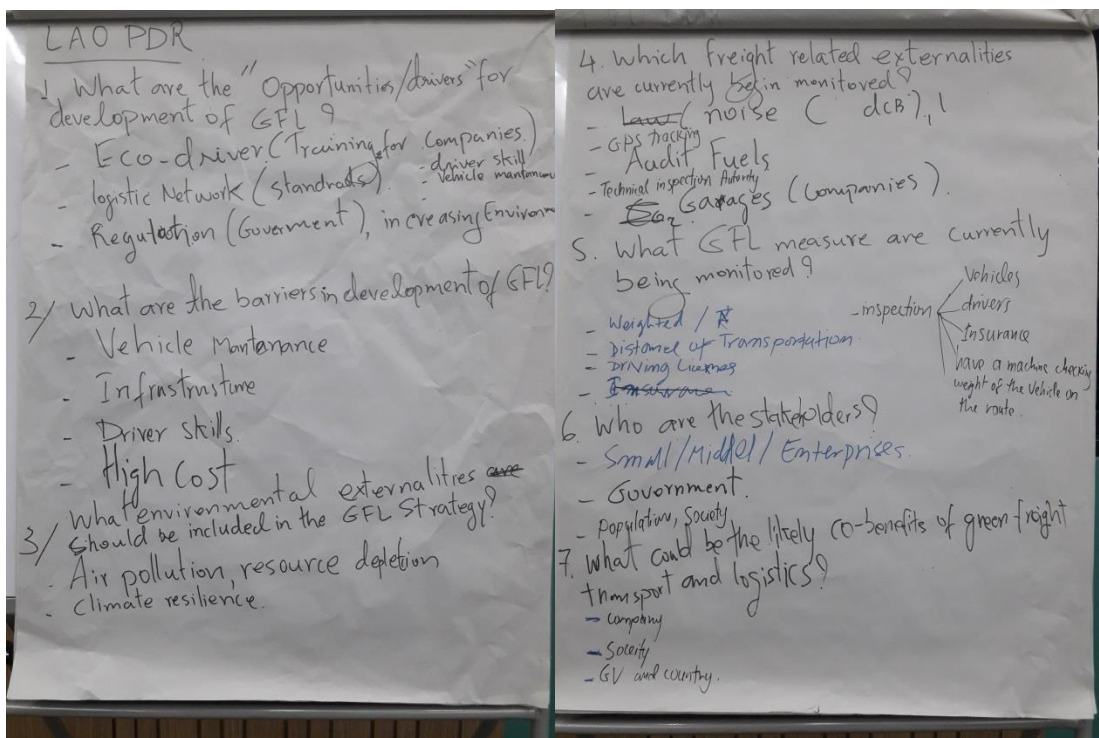 LAO PDR
1. What are the "Opportunities/drivers" for
development of GFL ?
- Eco-driver (Training for Companies)
- driver skill
- logistic Network (standrads).
- Vehicle mantanance
- Regulation (Goverment), increasing Environm
2/ What are the barriers in development of GFL?
- Vehicle Mantenance
- Infrastructure
- Driver skills.
- High Cost
3/ What environmental externalitires are
should be included in the GFL Strategy?
- Air pollution, resource depletion
- Climate resilience.
4. Which freight related externalities
are currently begin monitored?
- Law ( noise ( dCB),
- GPS tracking
- Audit Fuels
- Technical inspection Autority
- Garages (Companies).
5. What GFL measure are currently
being monitored?
- Weighted /
- Distancel of Transportation
- Driving Licenses
- Insurance
- inspection
Vehicles
drivers
Insurance
have a machine checking
weight of the vehicle on
the route.
6. Who are the stakeholders?
- Small/Middel/Enterprises.
- Government.
- Population, Society
7. What could be the likely co-benefits of green freight
transport and logistics?
- Company
- Soceity
- GV and country.